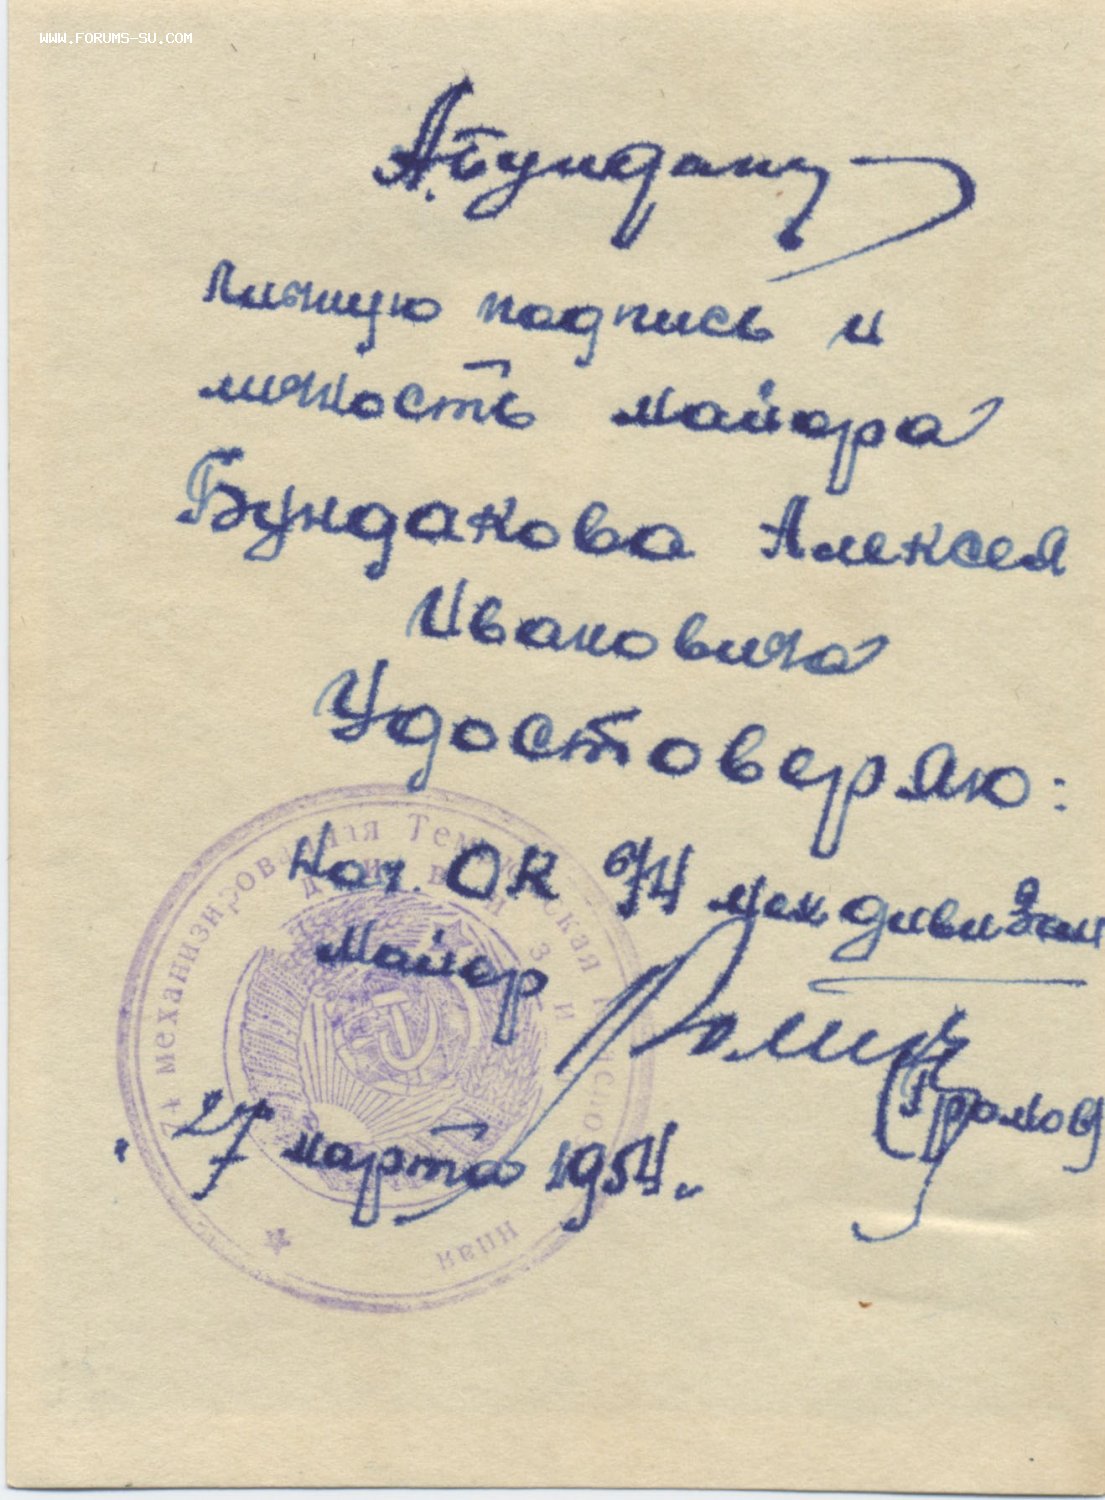 WWW.FORUMS-SU.COM
А.Бундак
Личную подпись и
личность майора
Бундакова Алексея
Ивановича
Удостоверяю:
Нач. ОК 74 мех дивизии
майор
Громов
"27" марта 1954 г.
механизированная